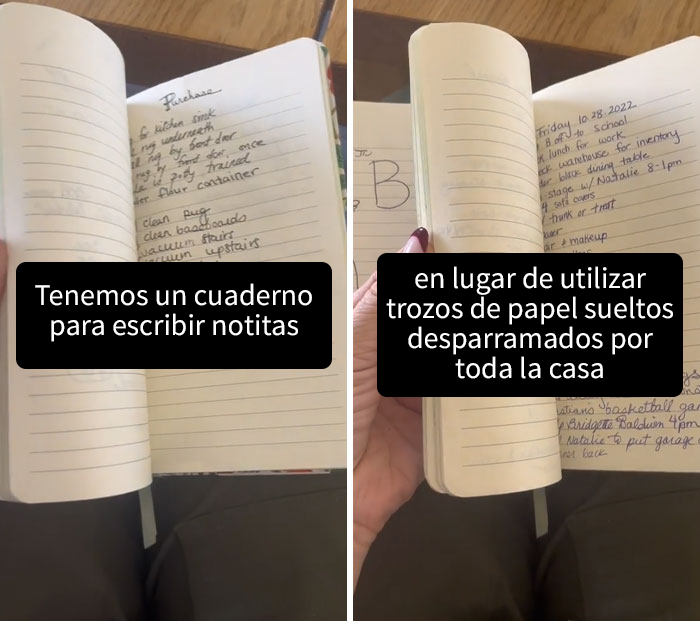 Purchase
for kitchen sink
rug underneath
rug by front door
rug by front door, once
is potty trained
flour container
clean rug
clean baseboards
vacuum stairs
vacuum upstairs
Tenemos un cuaderno
para escribir notitas
B
Friday 10.28.2022
B off to school
lunch for work
warehouse for inventory
black dining table
stage w/ Natalie 8-1pm
4 sofa covers
trunk or treat
& makeup
en lugar de utilizar
trozos de papel sueltos
desparramados por
toda la casa
basketball
Bridgette Baldwin 4pm
Natalie to put garage
back